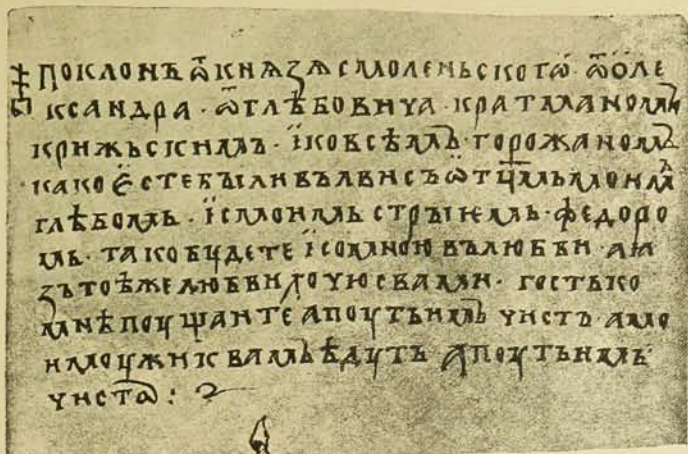 поклонъ ѿ кнѧзѧ смоленьского ѿ оле
ксандра · ѿ глѣбовича · к ратманомъ
к рижьскимъ · ї ко всѣмъ · горожаномъ
како єсте были въ лвисъ ѿтц҃мь моимъ
глѣбомь · ї с моимь стрыємь · федоро
мь · тако будете ї со мною в любви · а ꙗ
зъ тоѣ же любви хочю с вами · гость ко
мнѣ поущаите а поуть имъ чистъ · а мо
и моужи к вамъ ѣдуть а поуть имъ
чистъ :